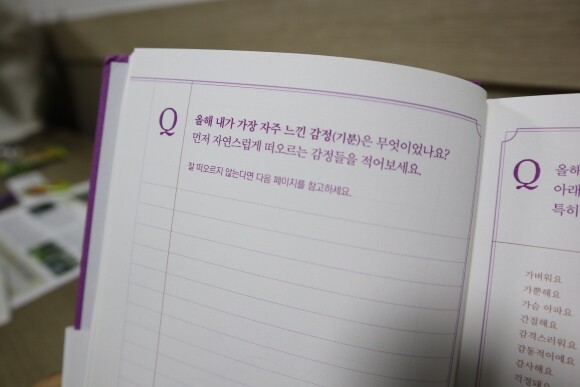 Q
올해 내가 가장 자주 느낀 감정(기분)은 무엇이었나요?
먼저 자연스럽게 떠오르는 감정들을 적어보세요.
잘 떠오르지 않는다면 다음 페이지를 참고하세요.
Q
올해
아래
특히
가벼워요
가뿐해요
가슴 아파요
간절해요
감격스러워요
감동적이에요
감사해요